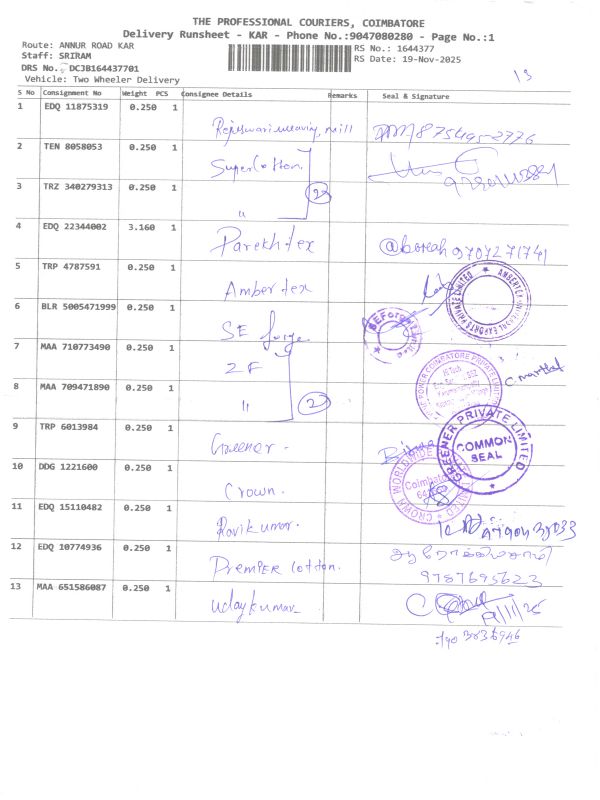 THE PROFESSIONAL COURIERS, COIMBATORE
Delivery Runsheet - KAR - Phone No.:9047080280 - Page No.:1
Route: ANNUR ROAD KAR
RS No.: 1644377
Staff: SRIRAM
RS Date: 19-Nov-2025
DRS No. DCJB164437701
Vehicle: Two Wheeler Delivery
13
S No Consignment No Weight PCS Consignee Details Remarks Seal & Signature
1 EDQ 11875319 0.250 1
Rajeswari weaving mill 875495-2776
2 TEN 8058053 0.250 1
Super Cotton
3 TRZ 340279313 0.250 1
" 2
4 EDQ 22344002 3.160 1
Parekh tex @boreah 9707271741
5 TRP 4787591 0.250 1
Amber tex
AMBERTEX INTERNATIONAL EXPORTS PRIVATE LIMITED
6 BLR 5005471999 0.250 1
SE forge
SEForge Limited
7 MAA 710773490 0.250 1
ZF
COIMBATORE PRIVATE LIMITED
8 MAA 709471890 0.250 1
" 2
9 TRP 6013984 0.250 1
Greener -
GREENER PRIVATE LIMITED
COMMON SEAL
10 DDG 1221600 0.250 1
Crown.
CROWN WORLDWIDE
Coimbatore
11 EDQ 15110482 0.250 1
Ravikumar.
12 EDQ 10774936 0.250 1
Premier Cotton. ஆரோக்கியசாமி
9787695623
13 MAA 651586087 0.250 1
Udaykumar 19/11/25